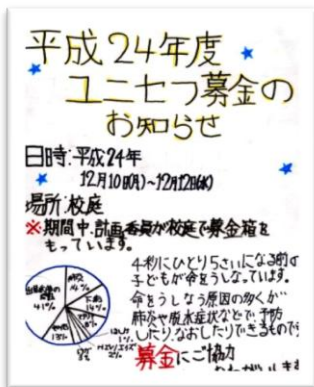 平成24年度
ユニセフ募金の
お知らせ
日時:平成24年
12月10日(月)~12月12日(水)
場所:校庭
※期間中、計画委員が校庭で募金箱を
もっています。
4秒にひとり5さいになる前の
子どもが命をうしなっています。
命をうしなう原因の多くが
肺炎や脱水症状などで、予防
したり、なおしたりできるもので
募金にご協力
肺炎
14%
下痢
14%
41%
13%
はしか
1%
2%